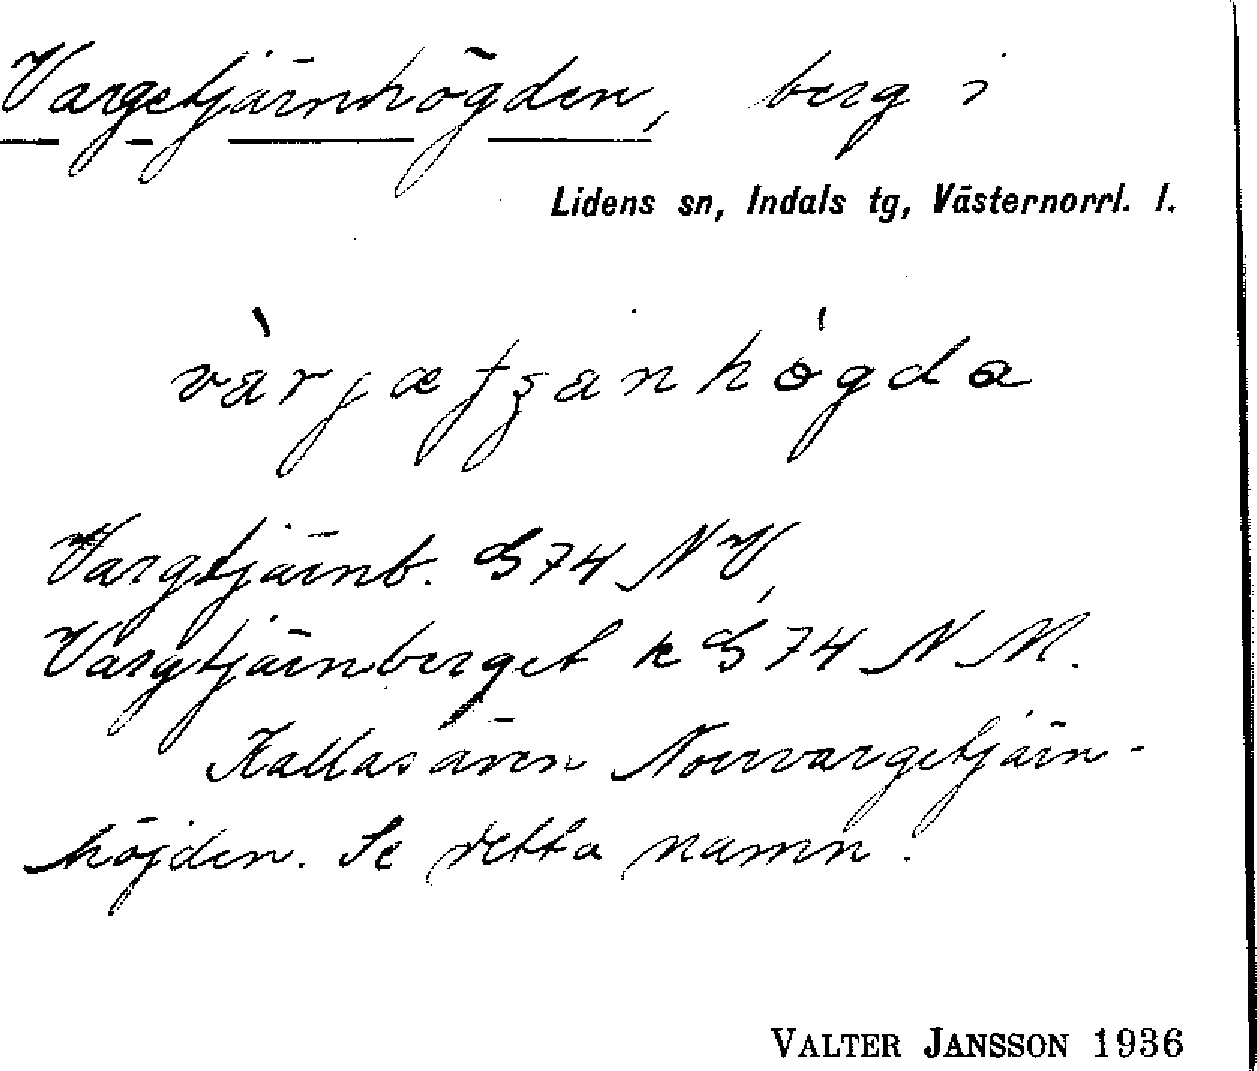 Vargetjärnhögden, berg i
Lidens sn, Indals tg, Västernorrl. l.
Vargtjärnb. S74 NV,
Vargtjärnberget k S74 N M.
Kallas även Norrvargetjärn-
höjden. Se detta namn.
VALTER JANSSON 1936